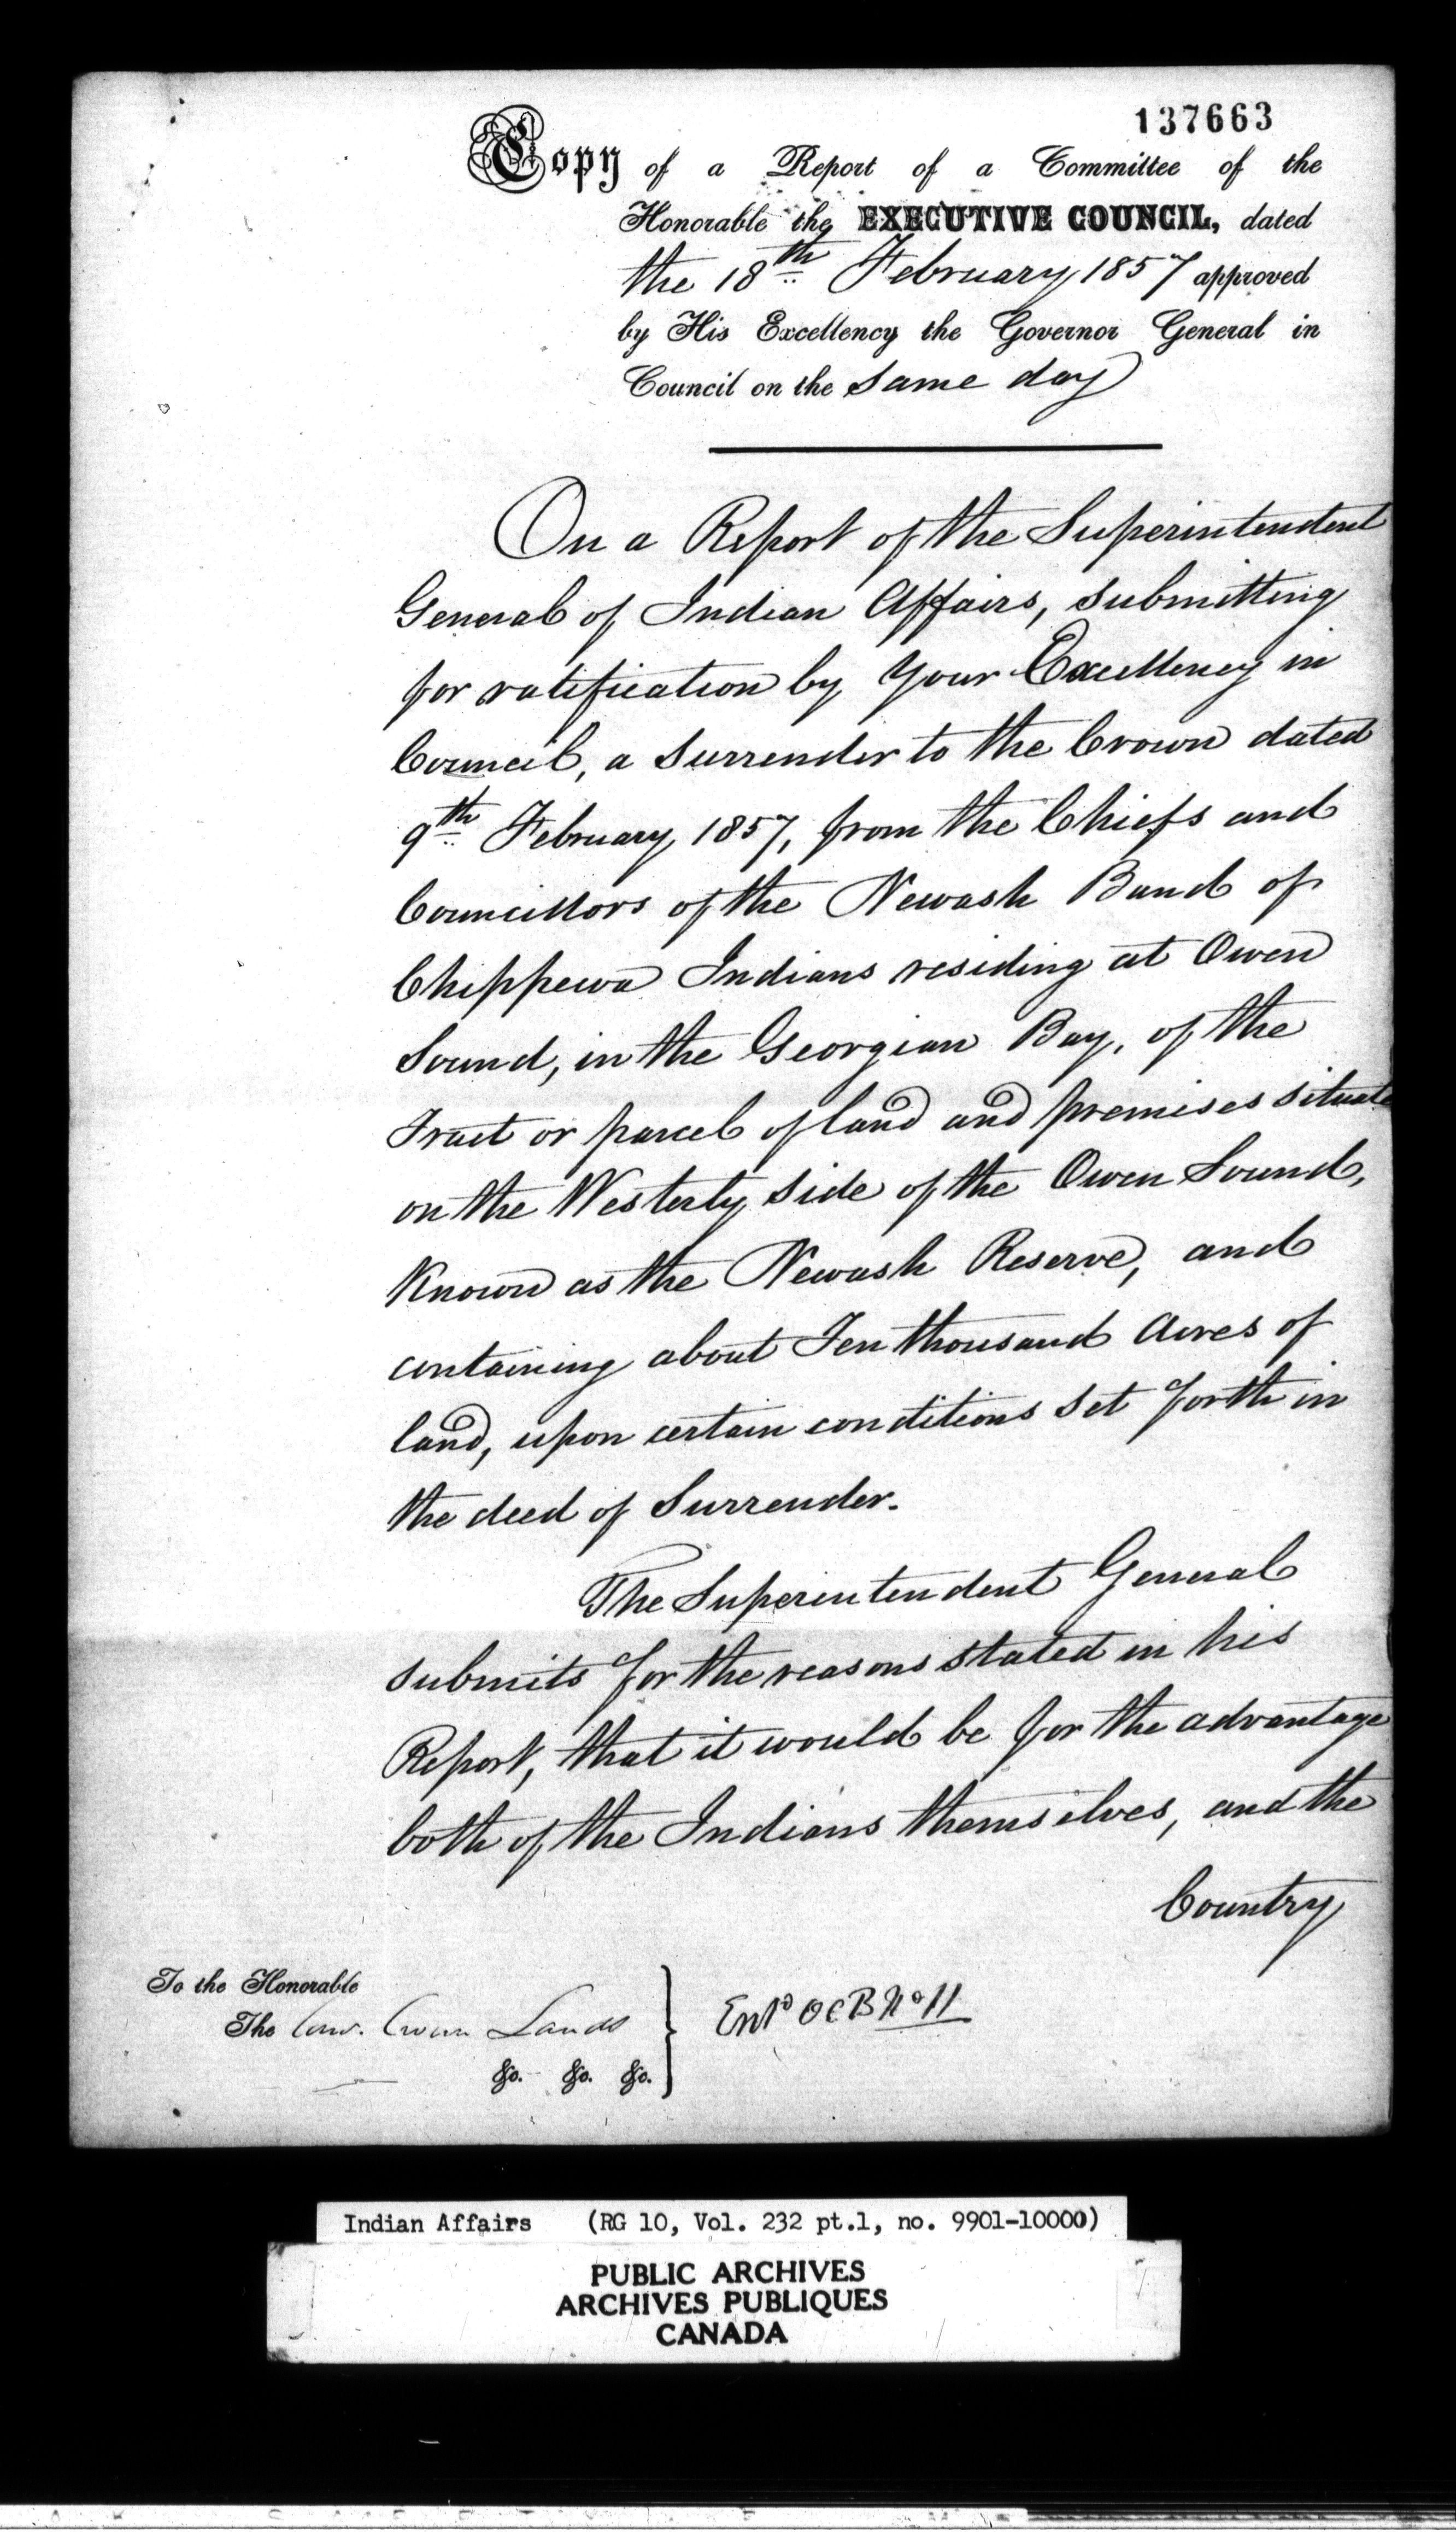 137663
Copy of a Report of a Committee of the
Honorable the EXECUTIVE COUNCIL, dated
the 18th February 1857 approved
by His Excellency the Governor General in
Council on the same day
On a Report of the Superintendent
General of Indian Affairs, submitting
for ratification by Your Excellency in
Council, a Surrender to the Crown dated
9th February 1857, from the Chiefs and
Councillors of the Newash Band of
Chippewa Indians residing at Owen
Sound, in the Georgian Bay, of the
Tract or parcel of land and premises situate
on the Westerly side of the Owen Sound,
Known as the Newash Reserve, and
containing about Ten thousand Acres of
land, upon certain conditions set forth in
the deed of Surrender.
The Superintendent General
submits for the reasons stated in his
Report, that it would be for the advantage
both of the Indians themselves, and the
Country
To the Honorable
The Com. Crown Lands
&c. &c. &c.
Entd O C B No 11
Indian Affairs (RG 10, Vol. 232 pt.1, no. 9901-10000)
PUBLIC ARCHIVES
ARCHIVES PUBLIQUES
CANADA